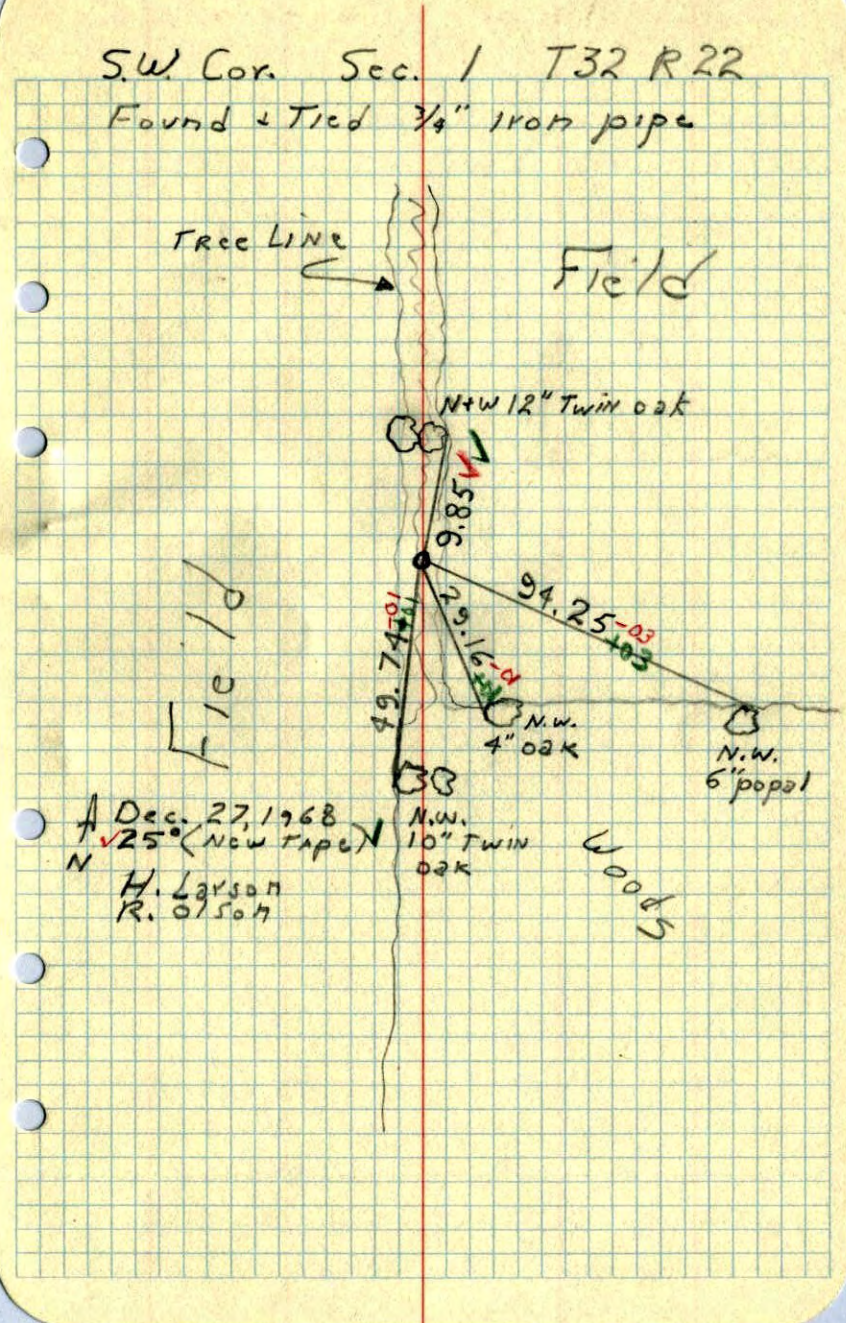 S.W. Cor. Sec. 1 T32 R22
Found & Tied 3/4" Iron pipe
Tree Line
Field
N+W 12" Twin oak
9.85
94.25 -03
+03
29.16
49.74 -01
+01
Field
N.W.
4" oak
N.W.
6" popal
N.W.
10" Twin
oak
Dec. 27, 1968
25° (New Tape)
N
H. Larson
R. Olson
Woods